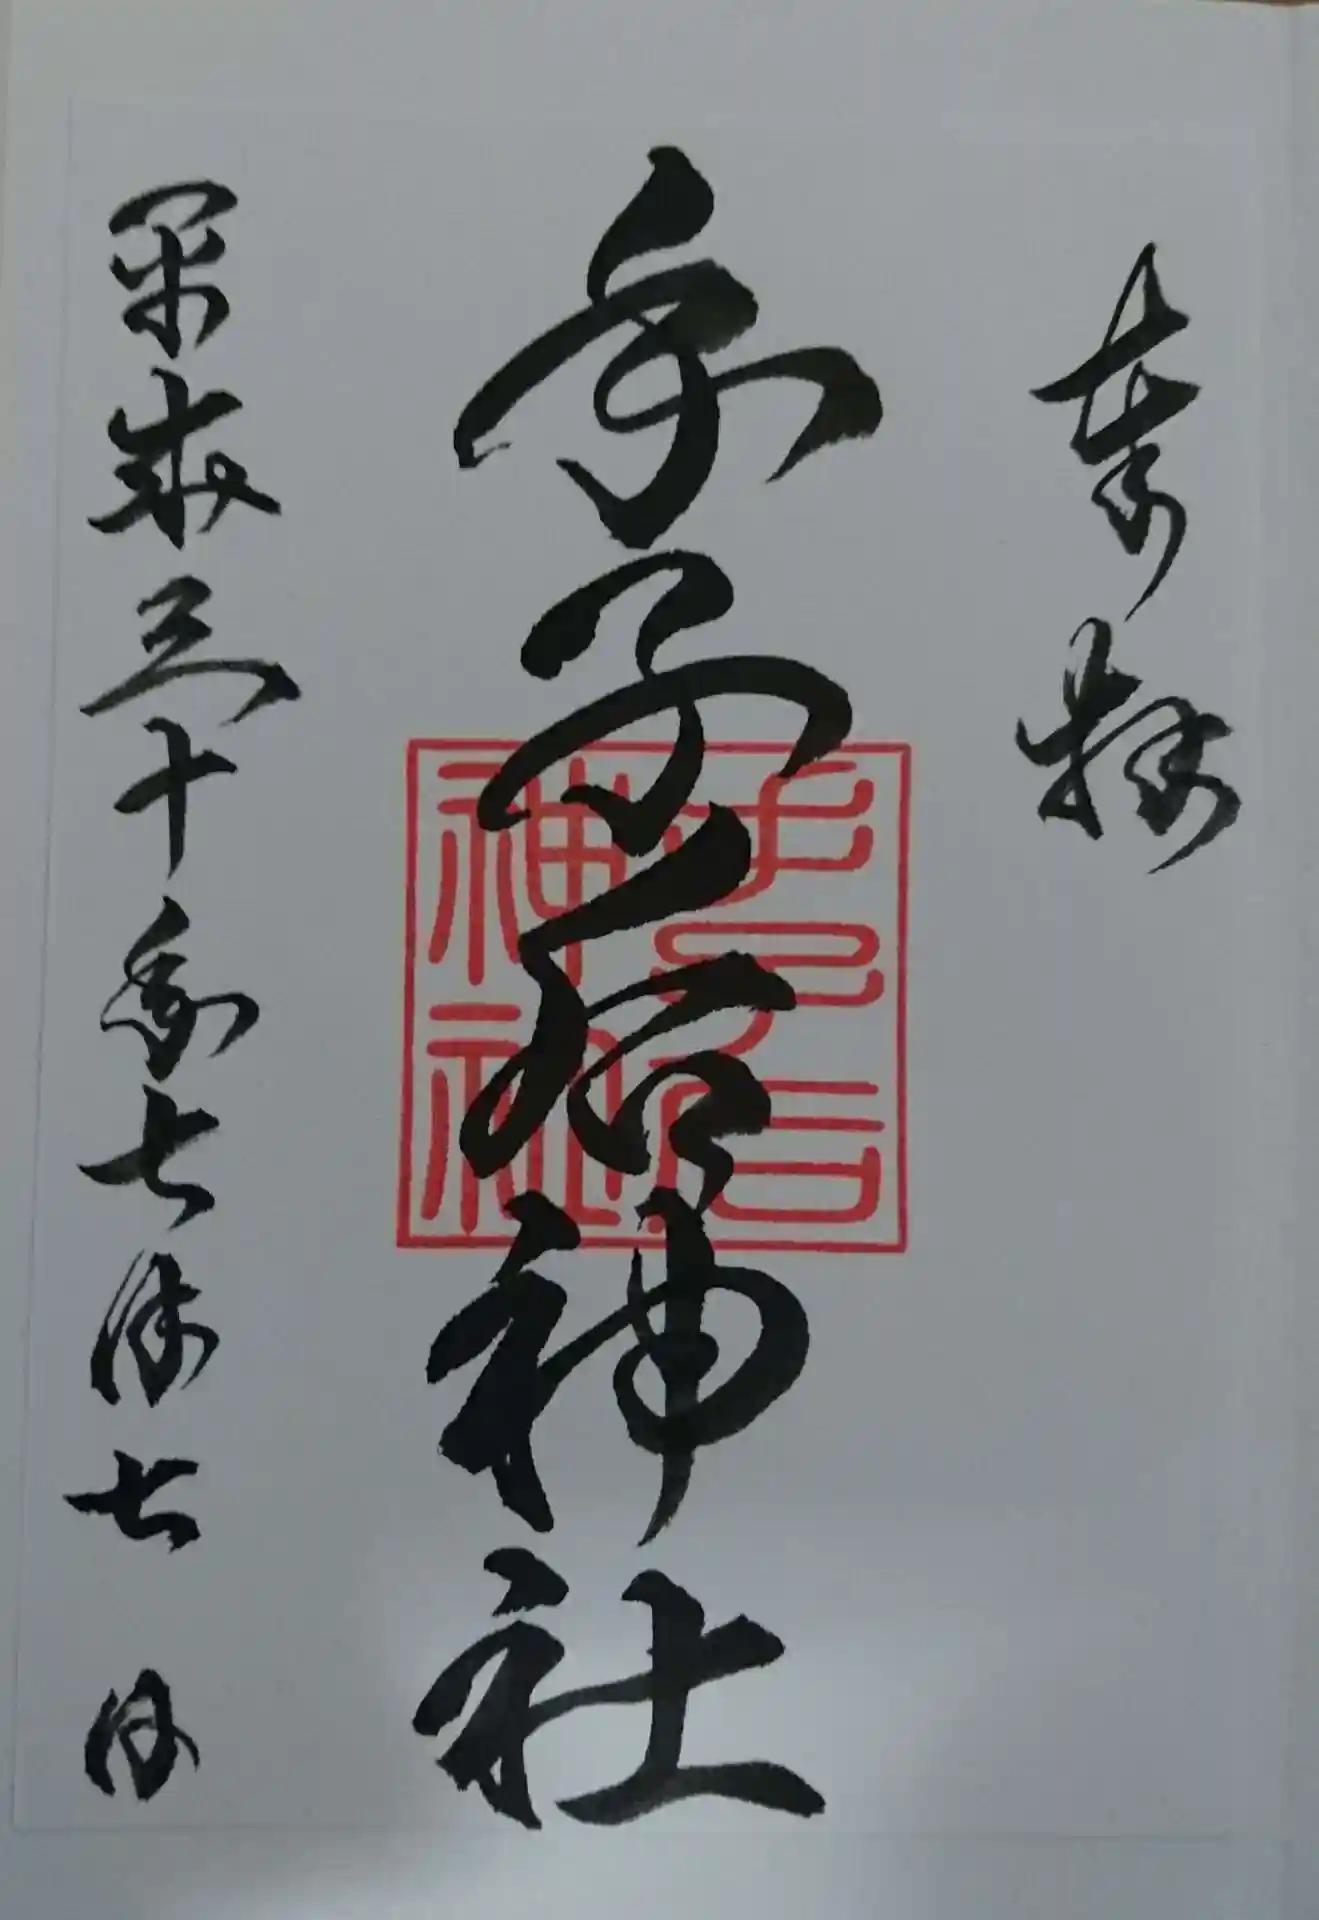 奉拝
手子后神社
手子后
神社
平成三十年七月七日